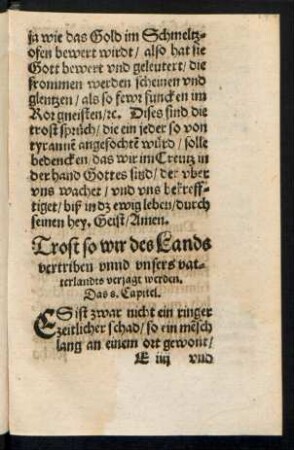 ja wie das Gold im Schmeltz-
ofen bewert wirdt / also hat sie
Gott bewert vnd geleutert / die
frommen werden scheinen vnd
glentzen / als so fewr funcken im
Rorgneisten / ꝛc. Dises sind die
trost sprüch / die ein jeder so von
tyrannē angefochtē würd / solle
bedencken / das wir im Creutz in
der hand Gottes sind / der vber
vns wachet / vnd vns bekreff-
tiget / biß in dz ewig leben / durch
seinen hey. Geist / Amen.
Trost so wir des Lands
vertriben vnnd vnsers vat-
terlandts verjagt werden.
Das 8. Capitel.
ES ist zwar nicht ein ringer
zeitlicher schad / so ein mēsch
lang an einem ort gewont /
E iiij vnd